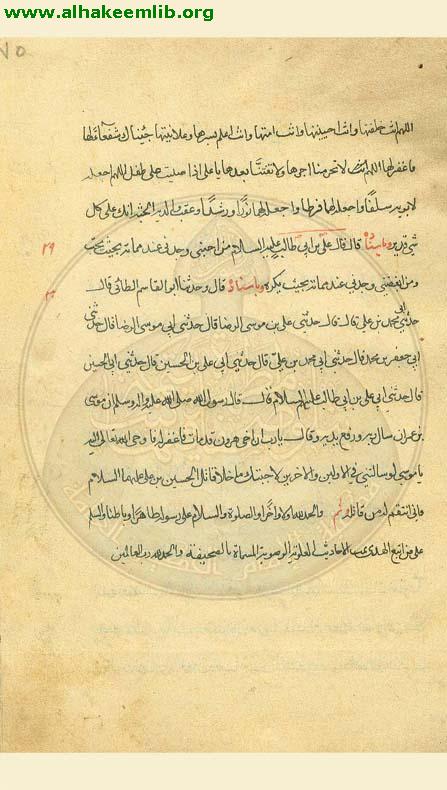 www.alhakeemlib.org
٧٥
اللهم انت خلقتها وانت احييتها وانت امتها وانت اعلم بسرها وعلانيتها جئناك شفعاء لها
فاغفر لها اللهم لا تحرمنا اجرها ولا تفتنا بعدها يا علي اذا صليت على طفل اللهم اجعله
لابويه سلفا واجعله لهما فرطا واجعله لهما نورا ورشدا وعقب الجنة انك على كل
شي قدير وباسناده قال قال علي بن ابي طالب عليه السلام من احبني وجدني عند مماته بحيث يحب ٢٩
ومن ابغضني وجدني عند مماته بحيث يكره وباسناده قال وحدثنا ابو القاسم الطائي قال ٣٠
حدثني ابي قال حدثني علي بن موسى الرضا قال حدثني ابي موسى قال حدثني
ابي جعفر بن محمد قال حدثني ابي محمد بن علي قال حدثني ابي علي بن الحسين قال حدثني ابي الحسين
قال حدثني ابي علي بن ابي طالب عليهم السلام قال قال رسول الله صلى الله عليه واله وسلم ان موسى
بن عمران سال ربه ورفع يديه وقال يا رب ان اخي هرون قد مات فاغفر له فاوحى الله تعالى اليه
يا موسى لو سالتني في الاولين والاخرين لاجبتك ما خلا قاتل الحسين بن علي عليهما السلام
فاني انتقم له من قاتله والحمد لله اولا واخرا والصلوة والسلام على رسوله ظاهرا وباطنا والسلم
على من اتبع الهدى الاحاديث العلوية الرضوية المسماة بالصحيفة والحمد لله رب العالمين